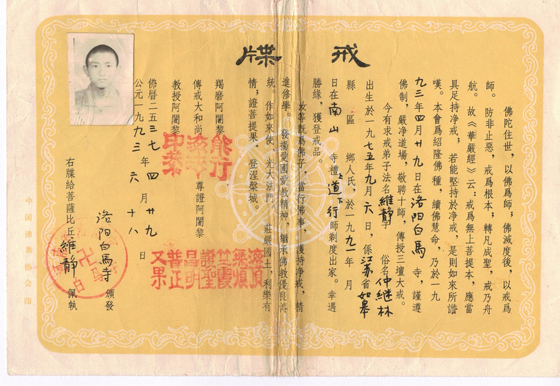 戒牒
佛陀住世,以佛爲師;佛滅度後,以戒爲
師。防非止惡,戒爲根本;轉凡成聖,戒乃舟
航。故《華嚴經》云:戒爲無上菩提本,應當
具足持淨戒,若能堅持於淨戒,是則如來所
嘆。本會爲紹隆佛種,續佛慧命,乃於一九
九三年四月廿九日在洛阳白馬寺,謹遵
佛制,嚴淨道場,敬聘十師,傳授三壇大戒。
今有求戒弟子法名維靜 俗名仲继林
出生於一九七五年九月六日,係江苏省如皋
縣 區 鄉人氏,於一九九一年 月
日在南山寺禮上道下行師剃度出家。幸遇
勝緣,獲登戒品
等既爲佛子,當行佛事,護持淨戒,精
進修學。發揚愛國愛教精神,繼承佛教優良
統,作如來使,光大法門,莊嚴國土,利樂有
情;證菩提果,登涅槃城。
羯磨阿闍黎 尊證阿闍黎
傳戒大和尚
教授阿闍黎
佛曆二五三七 四月廿九
公元一九九三 六 十八
洛阳白馬寺 頒發
右牒給菩薩比丘維靜 佩執